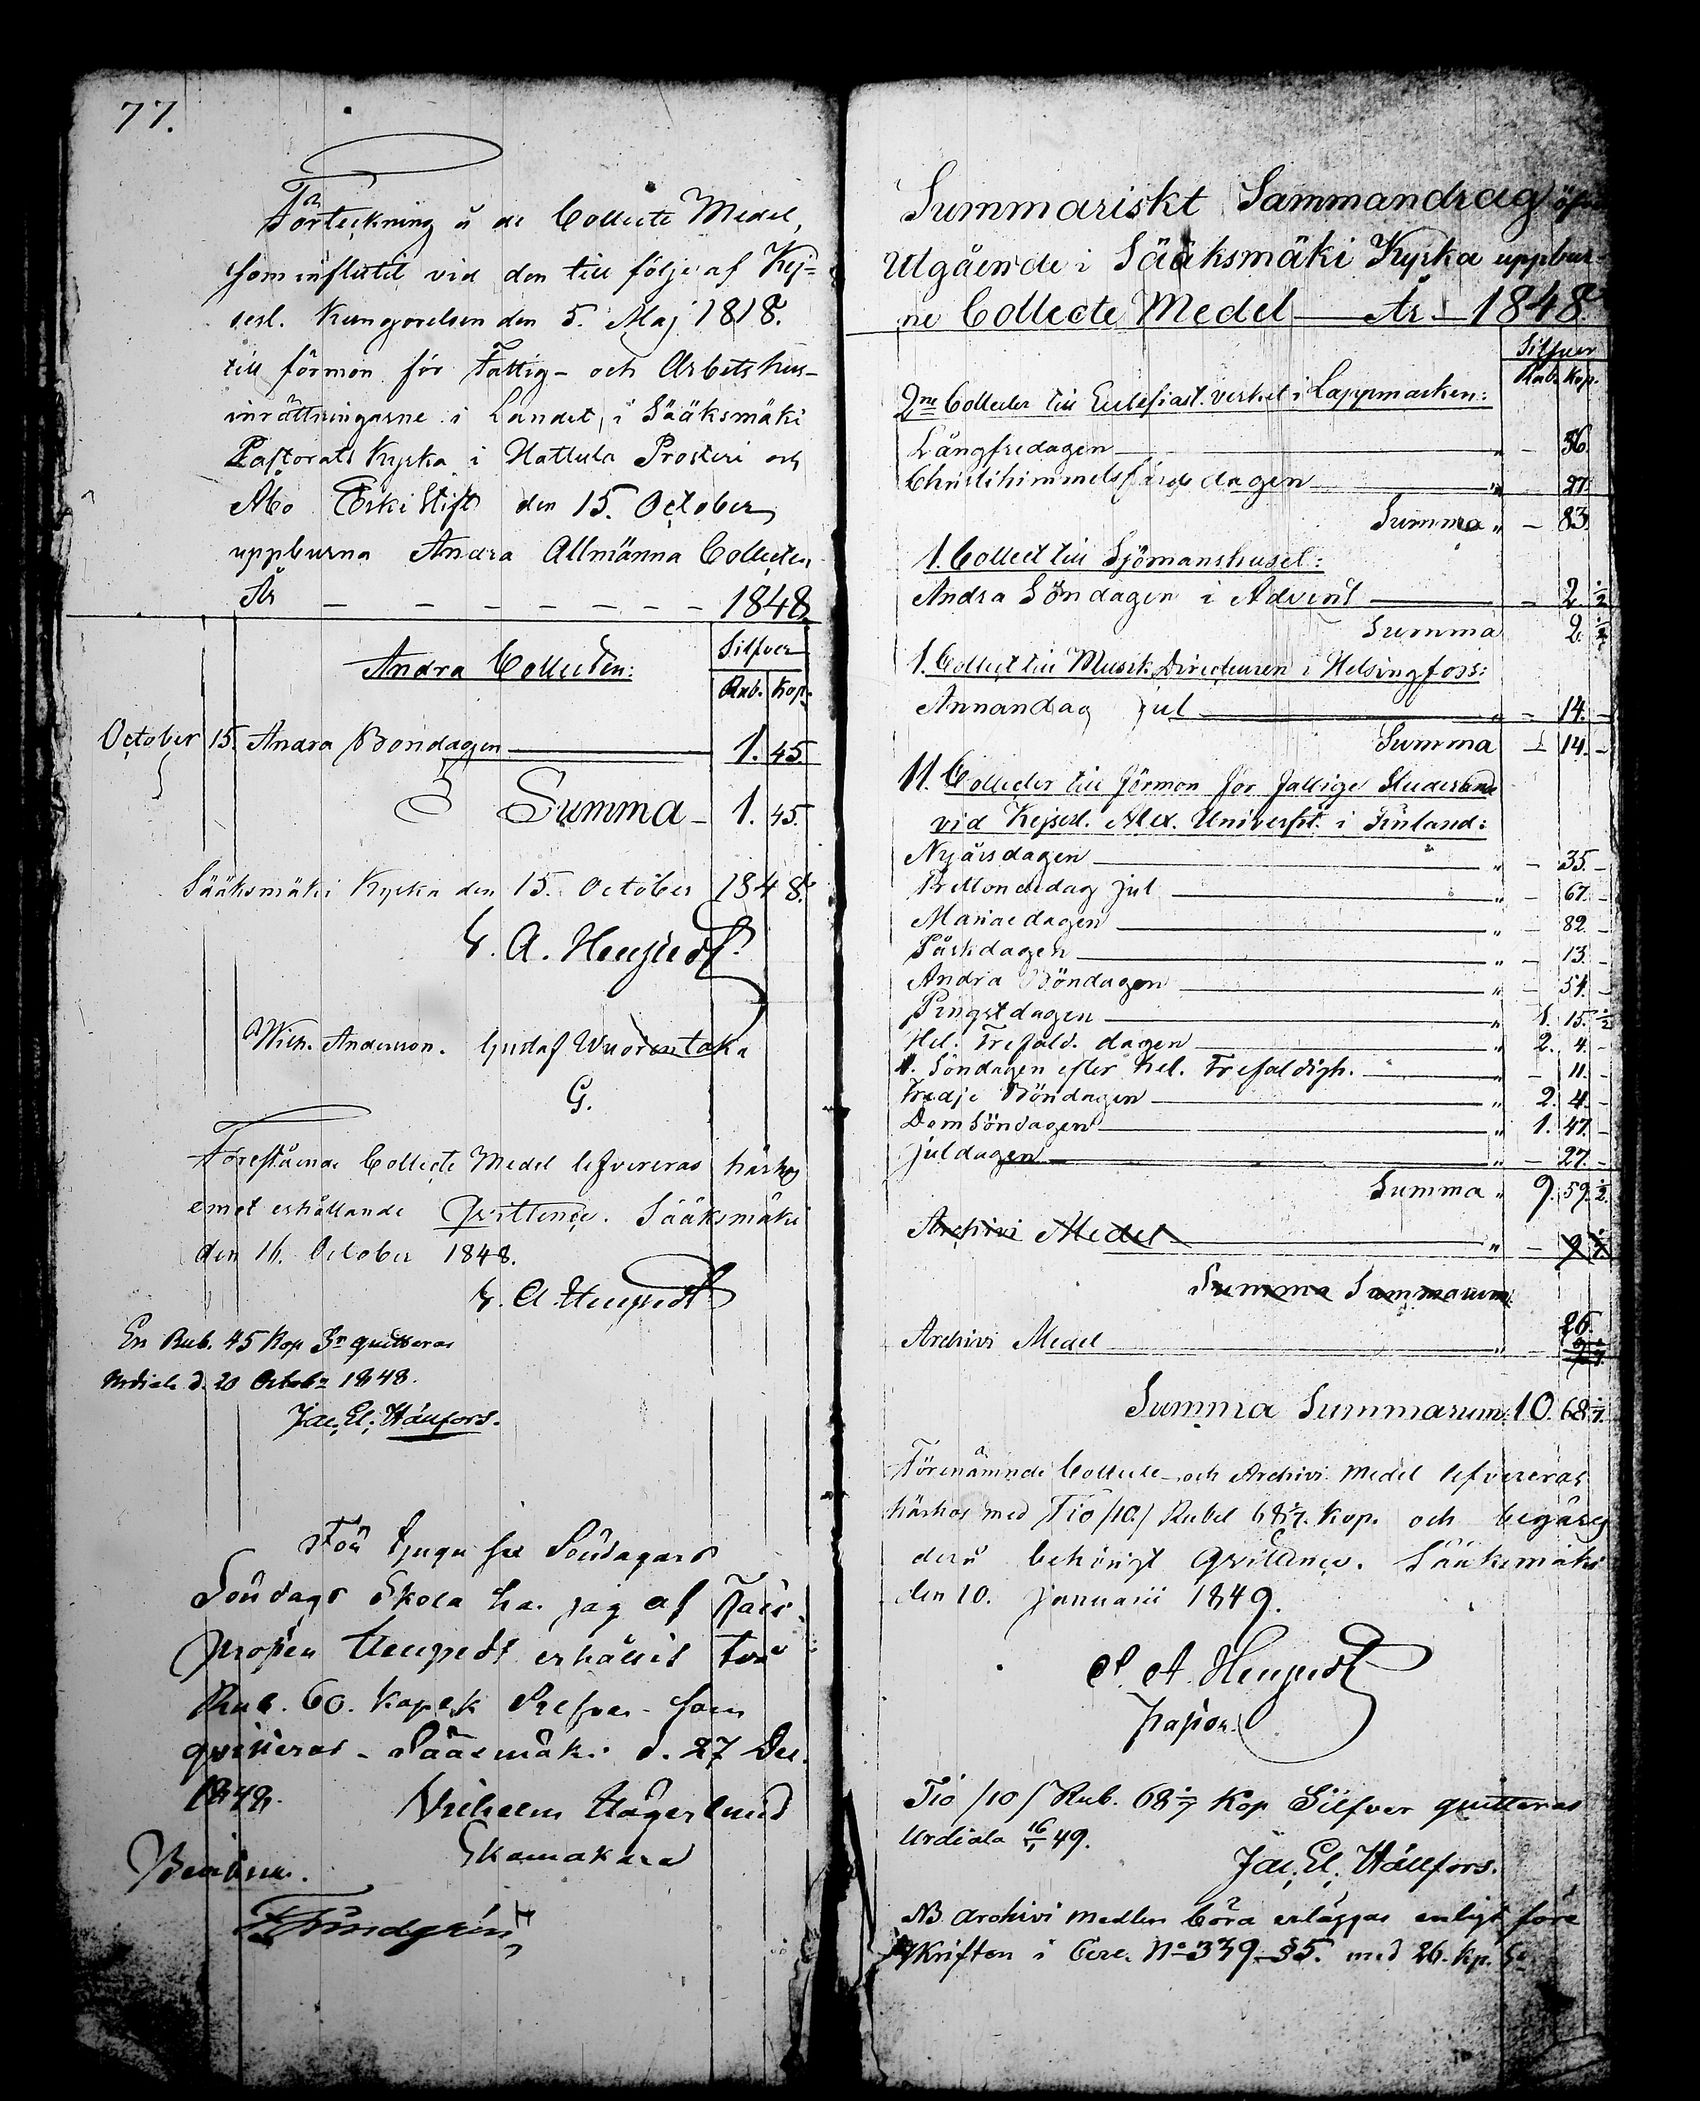 77.
Förteckning å de Collecte Medel,
som influtit vid den till följe af Kej=
serl. Kungörelsen den 5. Maj 1818.
till förmon för Fattig- och Arbetshus-
inrättningarne i Landet, i Sääksmäki
Pastorats Kyrka i Hattula Prosteri och
Åbo Erki Stift den 15. October
uppburna Andra Allmänna Collecten
År - - - - - - - 1848.
Andra Collecten:
Silfver
Rub. Kop.
October 15. Andra Böndagen 1. 45.
Summa - 1. 45.
Sääksmäki Kyrka den 15. October 1848.
A. Heurjedt
Wilh. Andersson. Gustaf Wuorentaka
G.
Förestående Collecte Medel lefvereras härhos
emot erhållande Qvittence. Sääksmäki
den 16. October 1848.
A. Heurjedt
En Rub. 45 Kop Sr quitteras
Urdiala d. 20 Octobr 1848.
Jac. El. Hällfors.
För tjugu sex Söndagars
Söndags Skola har jag af
Prosten erhållit två
Rub. 60. kopek Silfver som
qvitteras - Sääsmäki d. 27 Dec.
1848.
Vilhelm Hägerlund
Skamakare
Bevitna.
Summariskt Sammandrag öfver
Utgående i Sääksmäki Kyrka uppbur-
ne Collecte Medel — År — 1848.
Silfver
Rub. Kop.
2ne Collecter till Ecclesiast. verket i Lappmarken:
Långfredagen " - 56.
Christihimmelsfärdsdagen " - 27.
Summa " - 83.
1. Collect till Sjömanshuset:
Andra Söndagen i Advent - 2. 1/2
Summa 2. 1/2
1. Collect till Musik Directeuren i Helsingfors:
Annandag jul " - 14. -
Summa - 14. -
11. Collecter till förmon för fattige Studerande
vid Kejserl. Alex. Universit. i Finland:
Nyårsdagen " - 35. -
Trettondedag jul " - 67. -
Mariaedagen " - 82. -
Påskdagen " - 13. -
Andra Böndagen " - 54. -
Pingstdagen " 1. 15. 1/2
Hel. Trefald. dagen " 2. 4. -
11. Söndagen efter hel. Trefaldigh. - 11. -
Tredje Böndagen " 2. 4. -
Domsöndagen " 1. 47. -
Juldagen " - 27. -
Summa " 9. 59. 1/2
Archivi Medel " - 9
Summa Summarum:
Archivi Medel " - 26.
Summa Summarum: 10. 68 1/7.
Förenämnde Collecte- och Archivi Medel lefvereras
härhos med Tio /10./ Rubel 68 1/7. Kop. och begäres
derå behörigt Qvittence. Sääksmäki
den 10. Januarii 1849.
A. Heurjedt
Tio /10/ Rub. 68 1/7 Kop Silfver quitteras
Urdiala 16/1 49.
Jac. El. Hällfors.
NB Archivi medlen böra erläggas enligt före
skriften i Circ. No 339 §5. med 26. kp. Sr